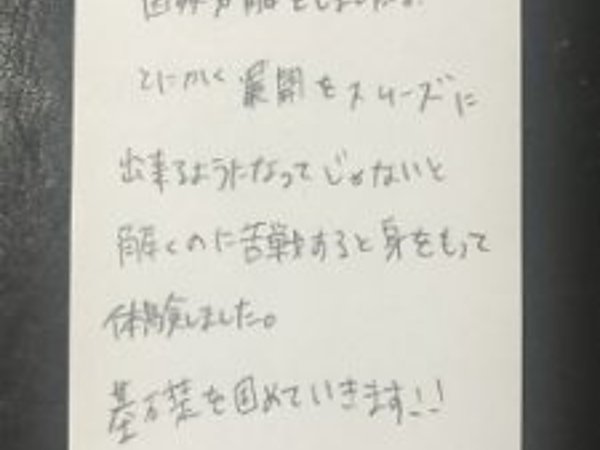 因数分解をしましたが
とにかく展開をスムーズに
出来るようになってじゃないと
解くのに苦戦すると身をもって
体験しました。
基礎を固めていきます!!